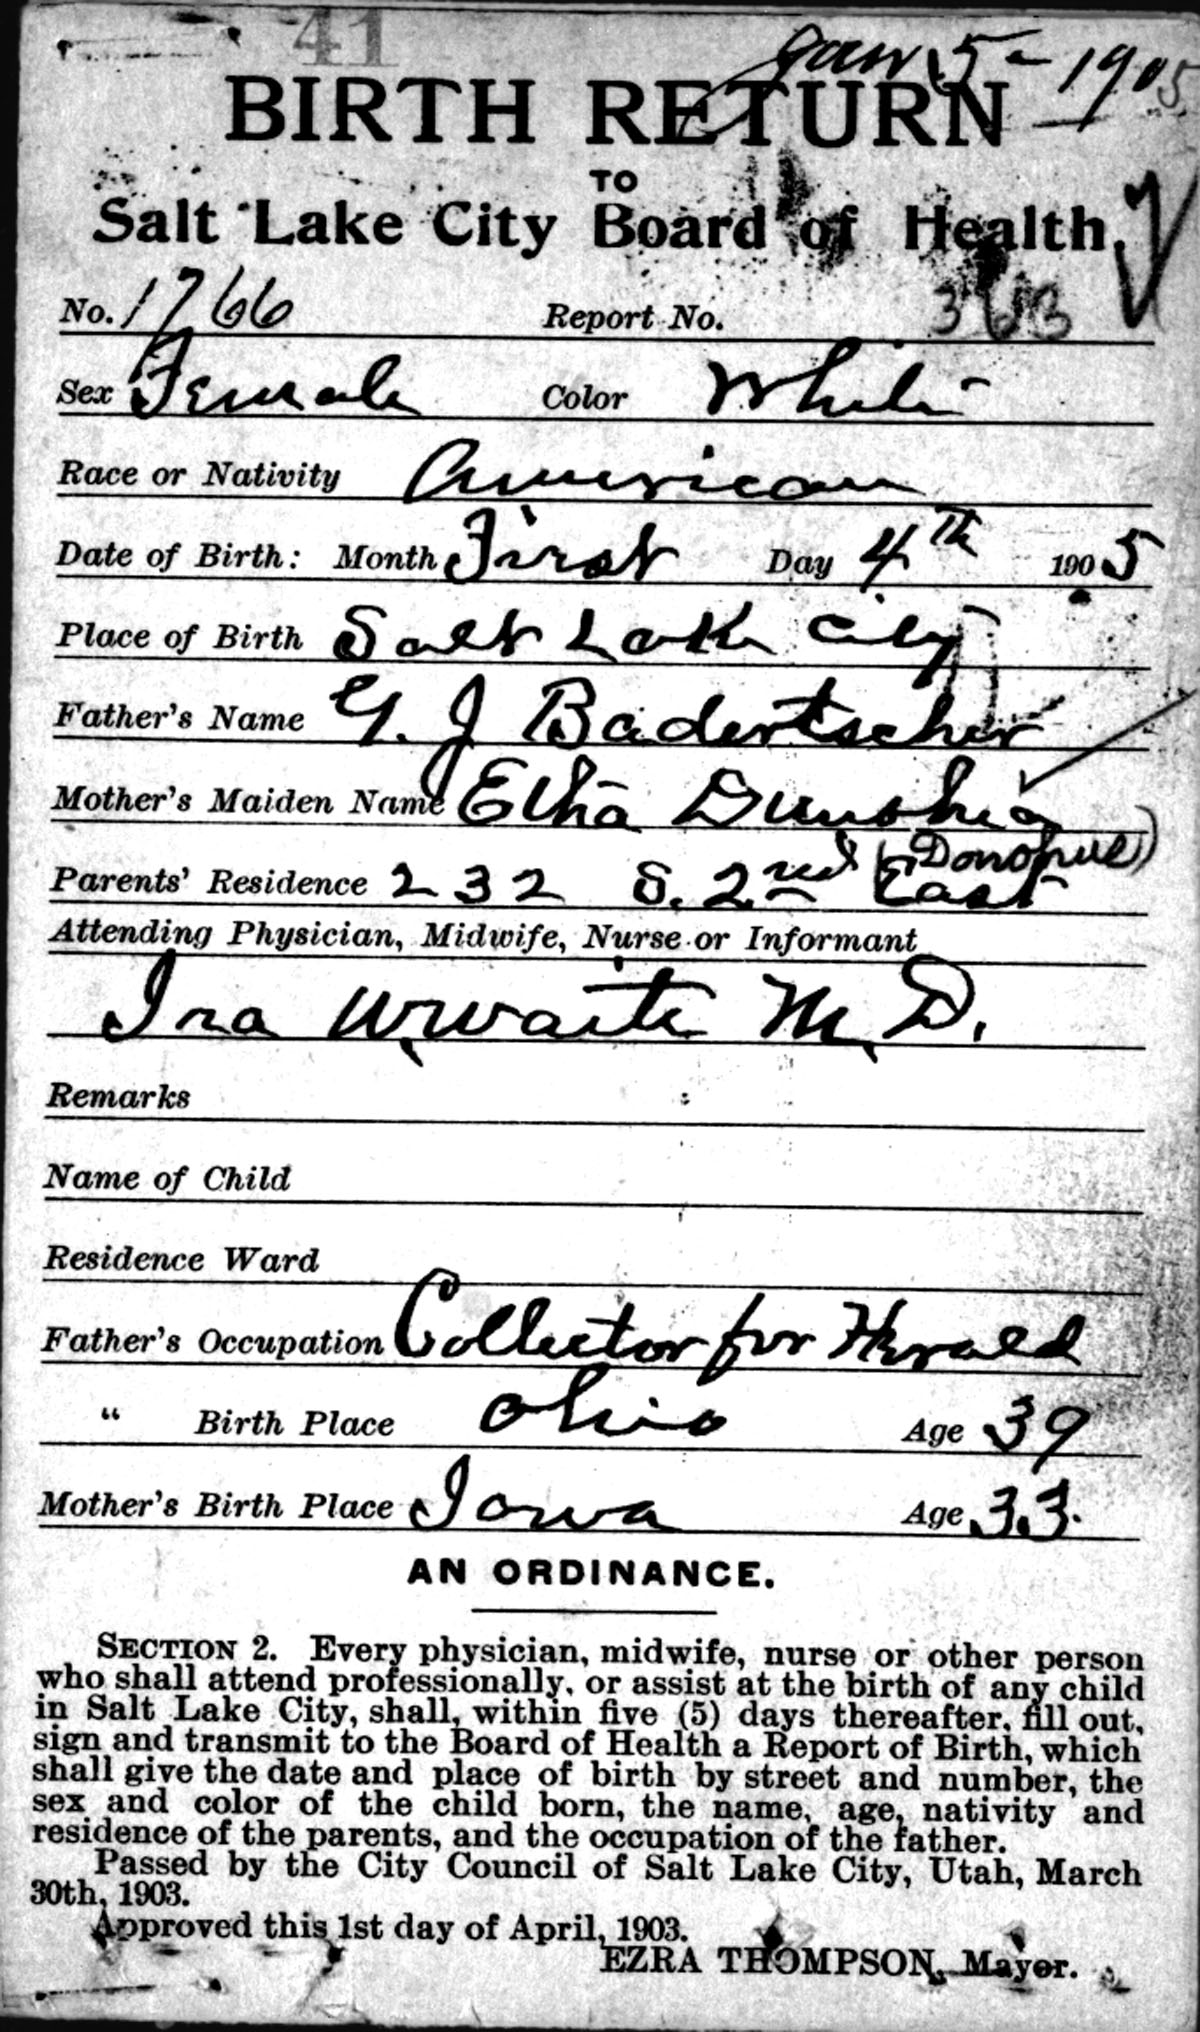 41
Jan 5 - 1905
BIRTH RETURN
TO
Salt Lake City Board of Health.
No. 1766 Report No. 363
Sex Female Color White
Race or Nativity American
Date of Birth: Month First Day 4th 1905
Place of Birth Salt Lake City
Father's Name G. J Badertscher
Mother's Maiden Name Etha
(Donohue)
Parents' Residence 232 S. 2nd East
Attending Physician, Midwife, Nurse or Informant
Ira W. Waite M. D.
Remarks
Name of Child
Residence Ward
Father's Occupation Collector for Herald
" Birth Place Ohio Age 39
Mother's Birth Place Iowa Age 33.
AN ORDINANCE.
SECTION 2. Every physician, midwife, nurse or other person
who shall attend professionally, or assist at the birth of any child
in Salt Lake City, shall, within five (5) days thereafter, fill out,
sign and transmit to the Board of Health a Report of Birth, which
shall give the date and place of birth by street and number, the
sex and color of the child born, the name, age, nativity and
residence of the parents, and the occupation of the father.
Passed by the City Council of Salt Lake City, Utah, March
30th, 1903.
Approved this 1st day of April, 1903.
EZRA THOMPSON, Mayor.